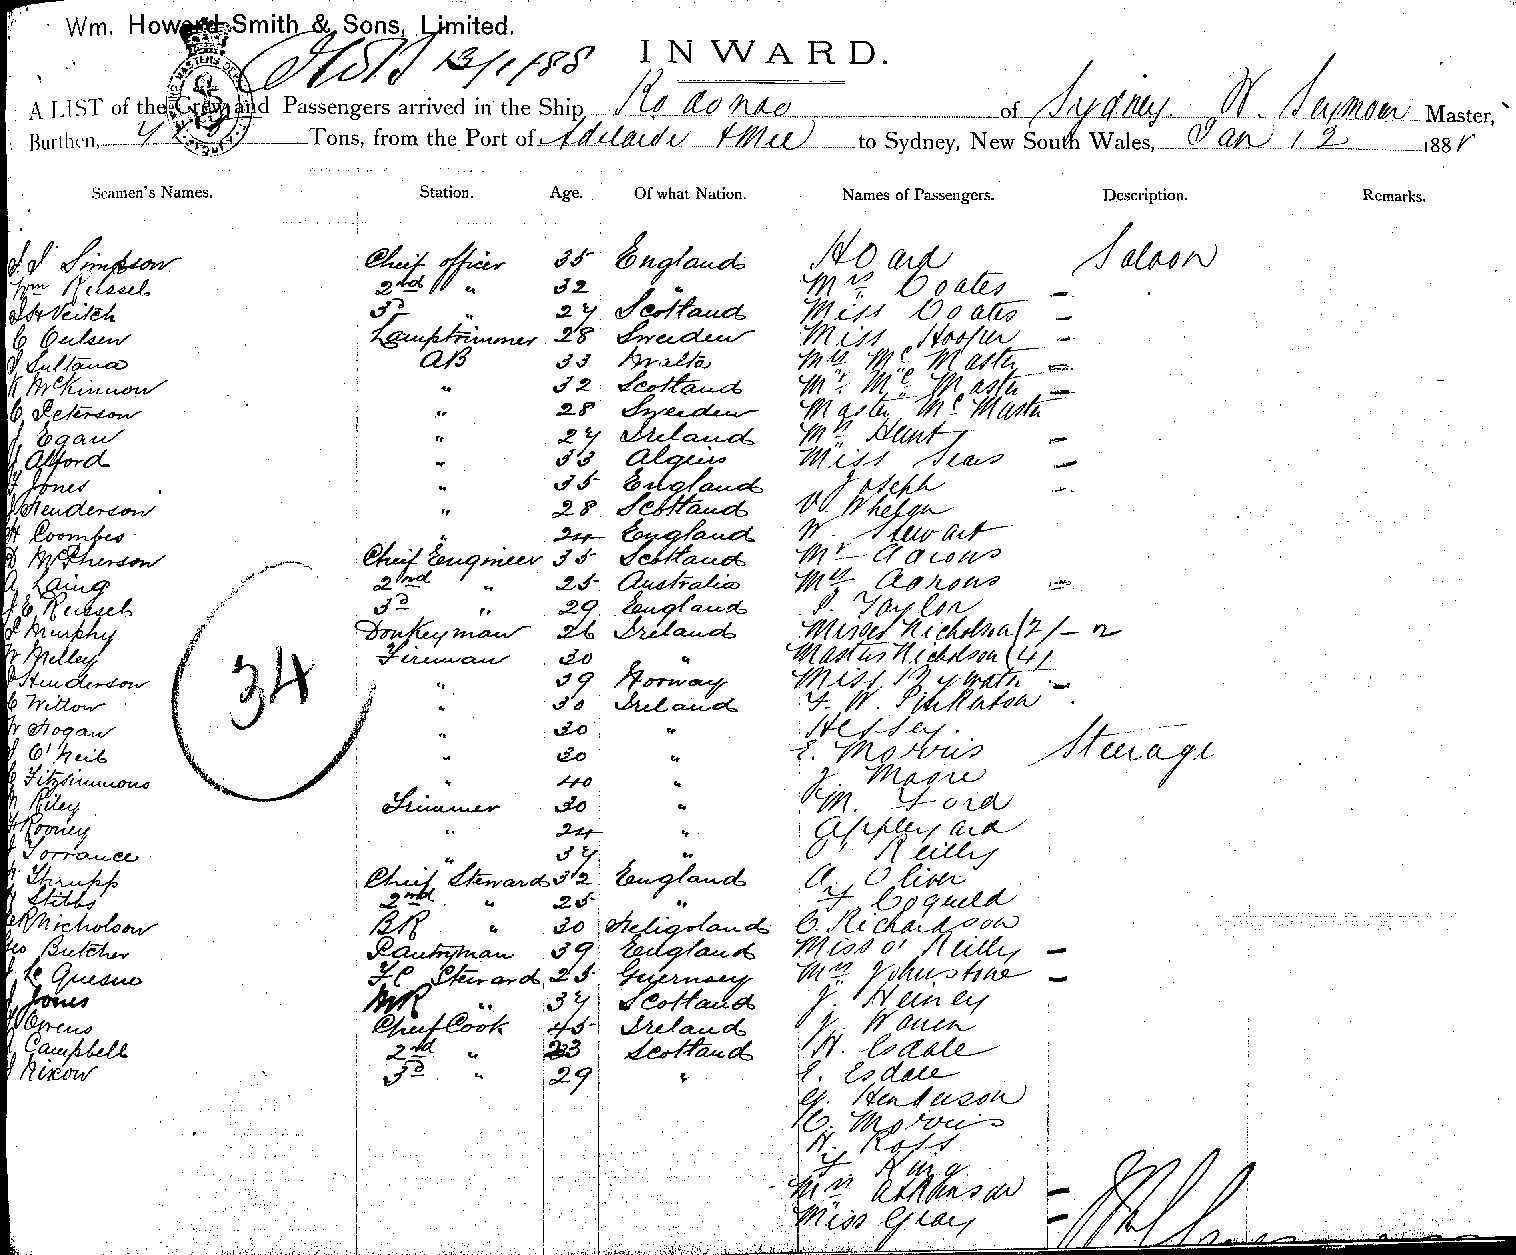 Wm. Howard Smith & Sons, Limited.
12/1/88
INWARD.
A LIST of the Crew and Passengers arrived in the Ship Rodondo of Sydney W. Seymour Master,
Burthen, Tons, from the Port of Adelaide & Mel to Sydney, New South Wales, Jan 12 1888
Seamen's Names. Station. Age. Of what Nation. Names of Passengers. Description. Remarks.
Simpson Cheif officer 35 England Hoard Saloon
Wm Russel 2nd " 32 " Mrs Coates –
Veitch 3d " 27 Scotland Miss Coates –
C Oulsen Lamptrimmer 28 Sweden Miss Hooper –
Sultana AB 33 Malta Mrs McMaster –
McKinnon " 32 Scotland Mr McMaster –
C Peterson " 28 Sweden Master McMaster
J Egan " 27 Ireland Mrs Hunt –
Alford " 33 Algeirs Miss Sears –
Jones " 35 England Joseph –
Henderson " 28 Scotland Whelan
H Coombes " 24 England W. Stewart
D McPherson Cheif Engineer 35 Scotland Mr Aarons
A Laing 2nd " 25 Australia Mrs Aarons –
J E Russel 3d " 29 England Taylor
Murphy Donkeyman 26 Ireland Misses Nicholson (2) – 2
W Melley Fireman 30 " Masters Nicholson (4)
Henderson " 39 Norway Miss Bywater –
C Willow " 30 Ireland F. W. Pinkerton
W Hogan " 30 "
J O'Neil " 30 " E. Morris Steerage
Fitzsimmons " 40 " J. Moore
Riley Trimmer 30 " M. Ford
Rooney " 24 " Appleyard
Torrance " 37 " O'Reilly
Thrupp Cheif Steward 32 England A. Oliver
Stibbs 2nd " 25 "
R Nicholson BR " 30 Heligoland C. Richardson
Geo Butcher Pantryman 39 England Miss O'Reilly –
Le Quesne FC Steward 25 Guernsey Mrs Johnstone –
J Jones MR " 37 Scotland J. Heiney
Owens Cheif Cook 45 Ireland J. Warren
Campbell 2nd " 23 Scotland H. Esdale
Nixon 3d " 29 " E. Esdale
G. Henderson
C. Morris
H. Ross
King
Mrs Atkinson –
Miss Gray –
34